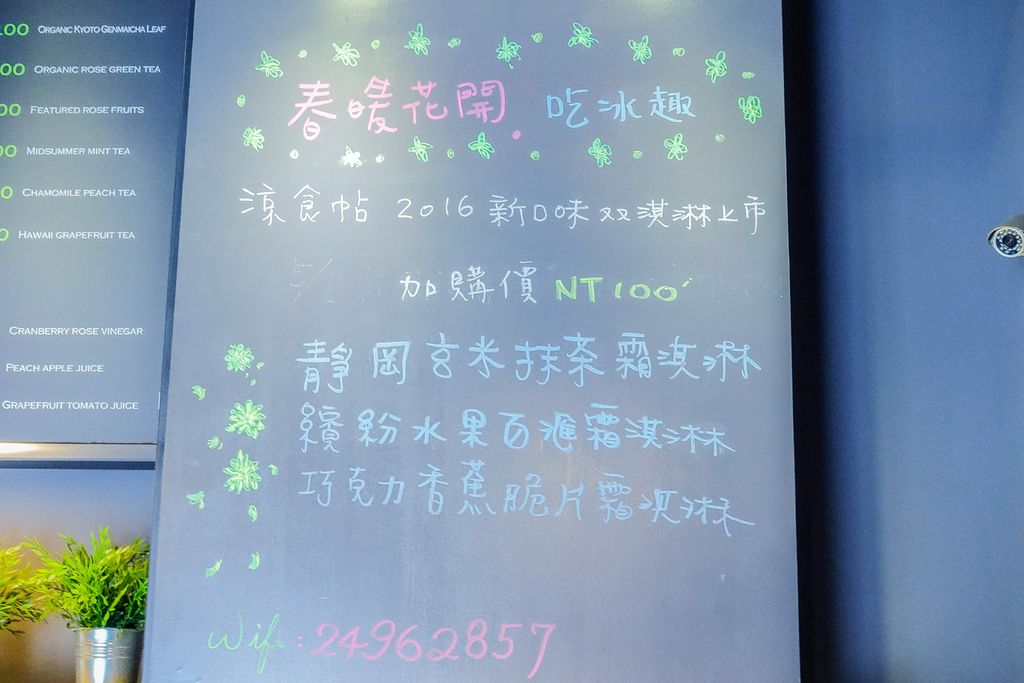 100 ORGANIC KYOTO GENMAICHA LEAF
00 ORGANIC ROSE GREEN TEA
00 FEATURED ROSE FRUITS
00 MIDSUMMER MINT TEA
0 CHAMOMILE PEACH TEA
0 HAWAII GRAPEFRUIT TEA
CRANBERRY ROSE VINEGAR
PEACH APPLE JUICE
GRAPEFRUIT TOMATO JUICE
春暖花開 吃冰趣
涼食帖 2016 新口味双淇淋上市
加購價 NT100
靜岡玄米抹茶霜淇淋
繽紛水果百滙霜淇淋
巧克力香蕉脆片霜淇淋
Wifi:24962857